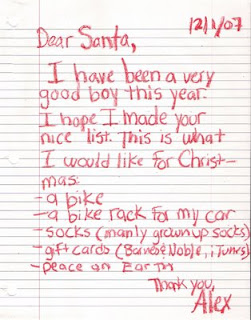 12/1/07
Dear Santa,
I have been a very
good boy this year.
I hope I made your
nice list. This is what
I would like for Christ-
mas:
-a bike
-a bike rack for my car
-socks (manly grown up socks)
-gift cards (Barnes & Noble, iTunes)
-peace on Earth
Thank you,
Alex